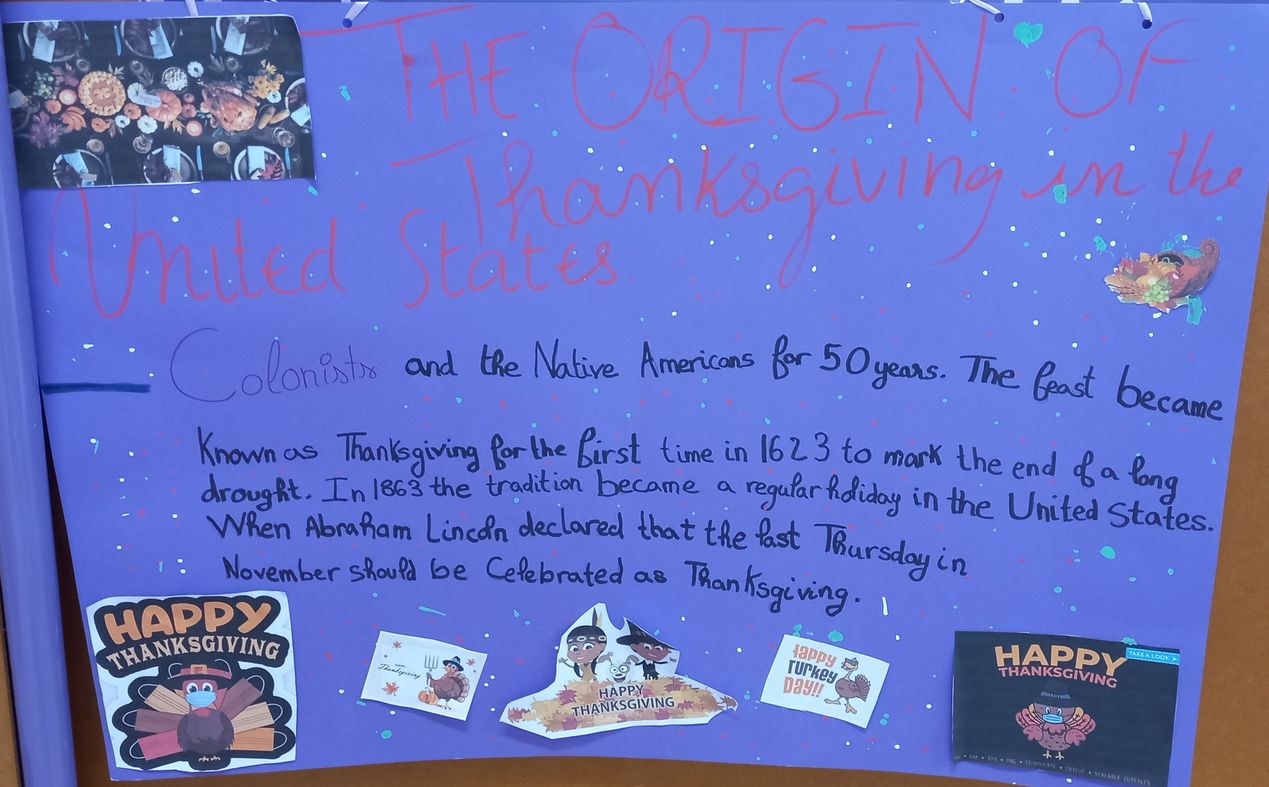 THE ORIGIN OF
Thanksgiving in the
United States
Colonists and the Native Americans for 50 years. The feast became
Known as Thanksgiving for the first time in 1623 to mark the end of a long
drought. In 1863 the tradition became a regular holiday in the United States.
When Abraham Lincoln declared that the last Thursday in
November should be Celebrated as Thanksgiving.
HAPPY
THANKSGIVING
Thanksgiving
HAPPY
THANKSGIVING
Happy
Turkey
DAY!!
TAKE A LOOK >
HAPPY
THANKSGIVING